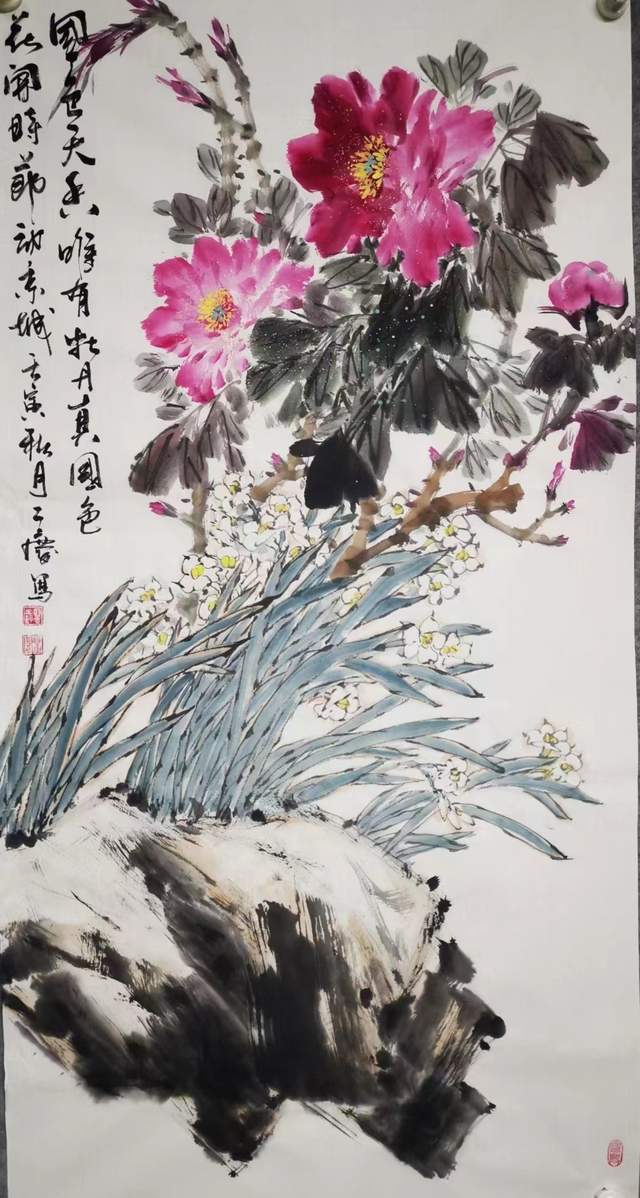 國色天香唯有牡丹真國色
花開時節動京城壬寅秋月
寫